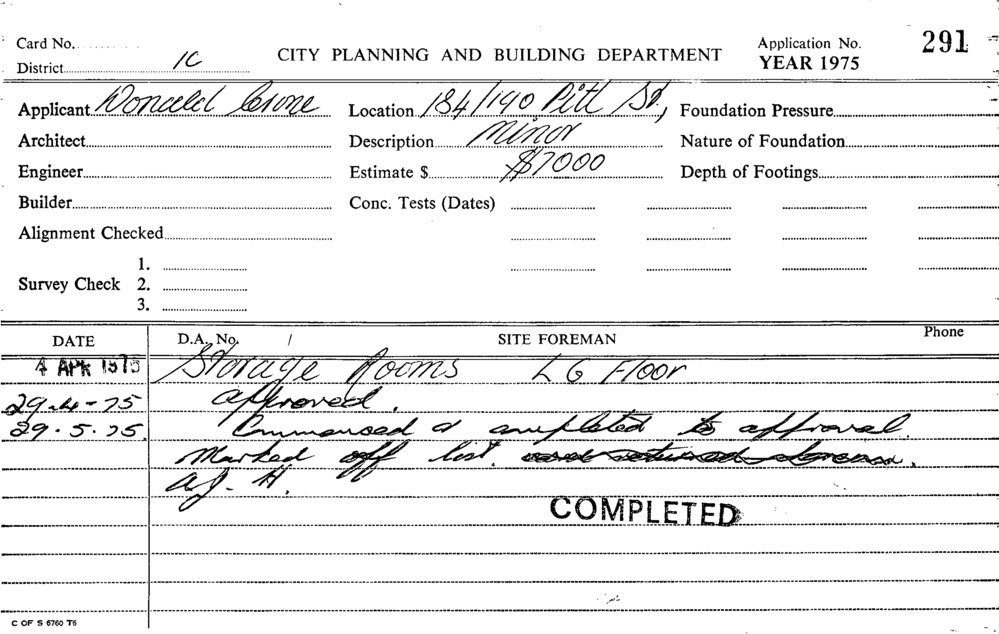 Card No.
District 1C
CITY PLANNING AND BUILDING DEPARTMENT
Application No. 291
YEAR 1975
Applicant Donald Crone
Location 184/190 Pitt St.,
Foundation Pressure
Architect
Description Minor
Nature of Foundation
Engineer
Estimate $ $7000
Depth of Footings
Builder
Conc. Tests (Dates)
Alignment Checked
Survey Check 1.
2.
3.
DATE D.A. No. / SITE FOREMAN Phone
4 APR 1975 Storage Rooms LG Floor
29.4-75 Approved.
29.5.75. Commenced & completed to approval.
Marked off list.
A.J. H.
COMPLETED
C OF S 6760 T6